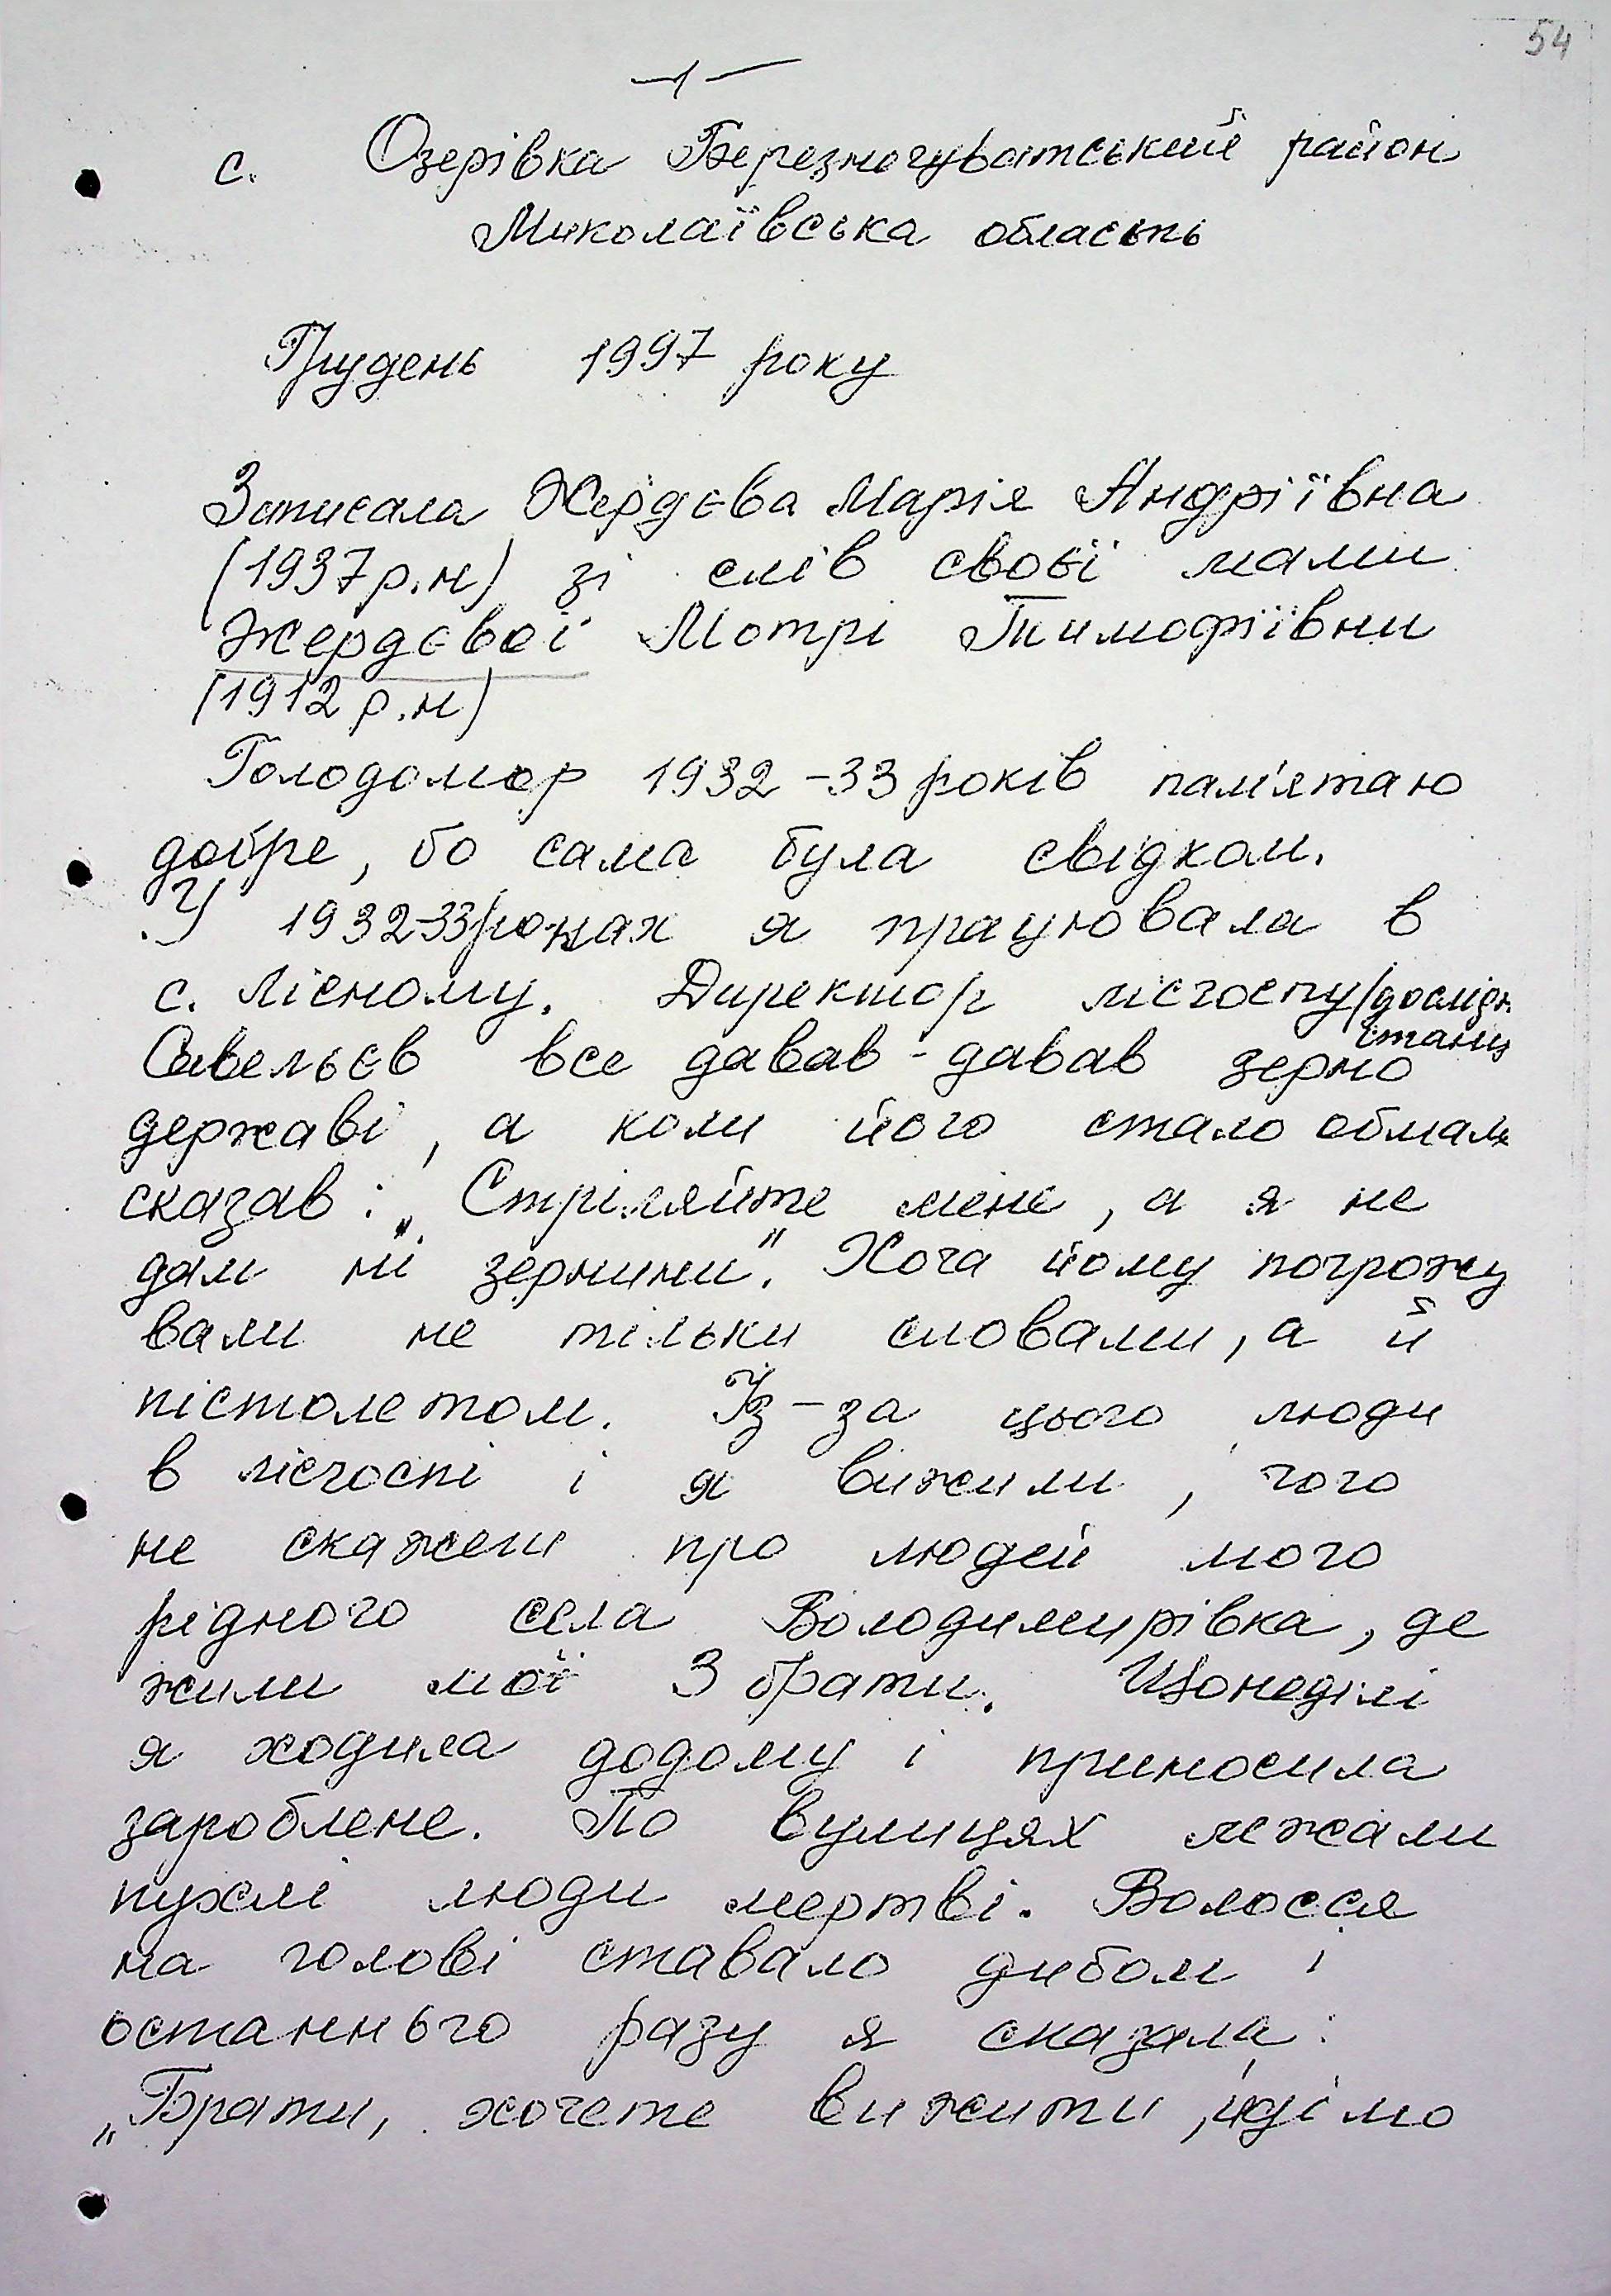 54
-1-
с. Озерівка Березнегуватський район
Миколаївська область
Грудень 1997 року
Записала Жердєва Марія Андріївна
(1937р.н) зі слів своєї мами
Жердєвої Мотрі Тимофіївни
(1912 р.н)
Голодомор 1932-33 років пам'ятаю
добре, бо сама була свідком.
У 1932-33 роках я працювала в
с. Лісному. Директор лісгоспу (дослідн.
станц
Савельєв все давав-давав зерно
державі, а коли його стало обмаль
сказав: „Стріляйте мене, а я не
дам ні зернини". Хоча йому погрожу
вали не тільки словами, а й
пістолетом. Із-за цього люди
в лісгоспі і я вижили, чого
не скажеш про людей мого
рідного села Володимирівка, де
жили мої 3 брати. Щонеділі
я ходила додому і приносила
зароблене. По вулицях лежали
пухлі люди мертві. Волосся
на голові ставало дибом і
останнього разу я сказала:
„Брати, хочете вижити, ідімо